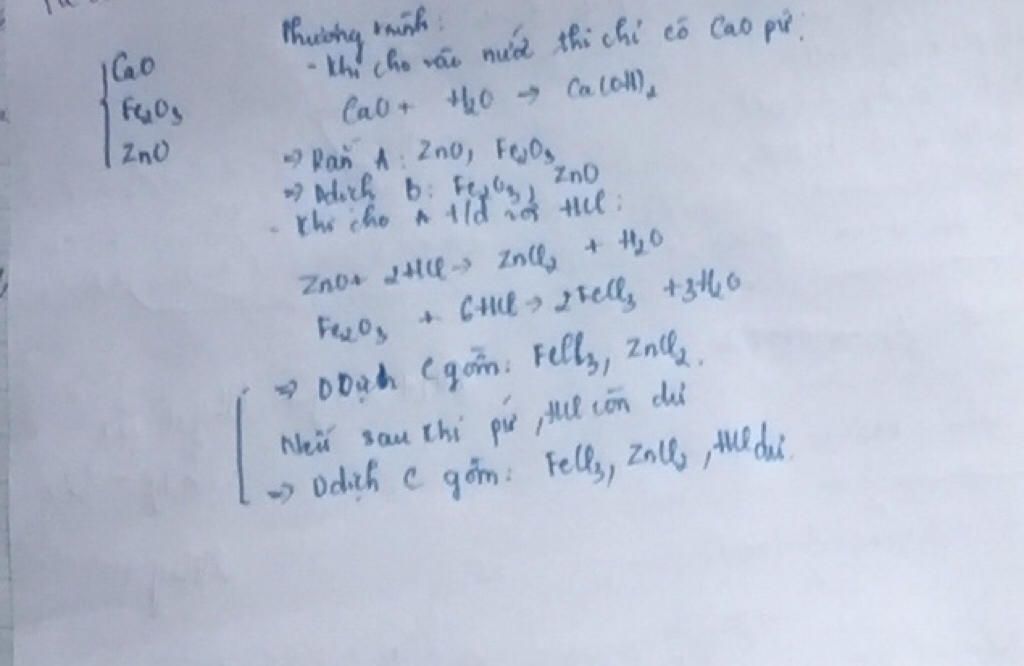 Phương trình:
- Khi cho vào nước thì chỉ có CaO pứ:
CaO
Fe₂O₃
ZnO
CaO + H₂O → Ca(OH)₂
=> Rắn A: ZnO, Fe₂O₃
=> Ddịch B: Fe₂O₃, ZnO
- Khi cho A t/d với HCl:
ZnO + 2HCl → ZnCl₂ + H₂O
Fe₂O₃ + 6HCl → 2FeCl₃ + 3H₂O
=> DDịch C gồm: FeCl₃, ZnCl₂.
Nếu sau khi pứ, HCl còn dư
=> Ddịch C gồm: FeCl₃, ZnCl₂, HCl dư.